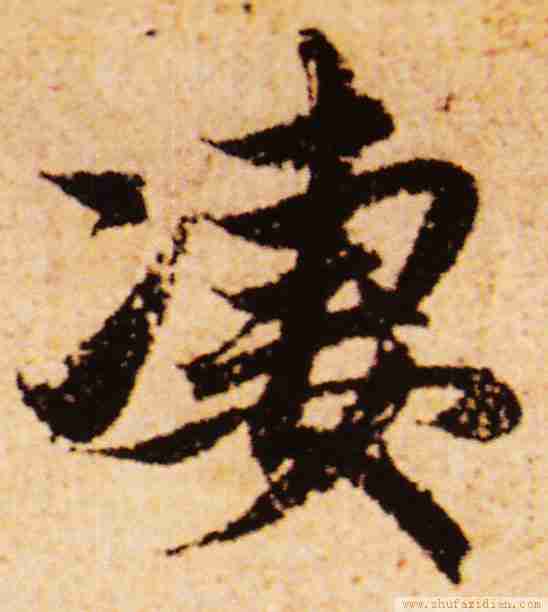 凄
www.shufazidian.com